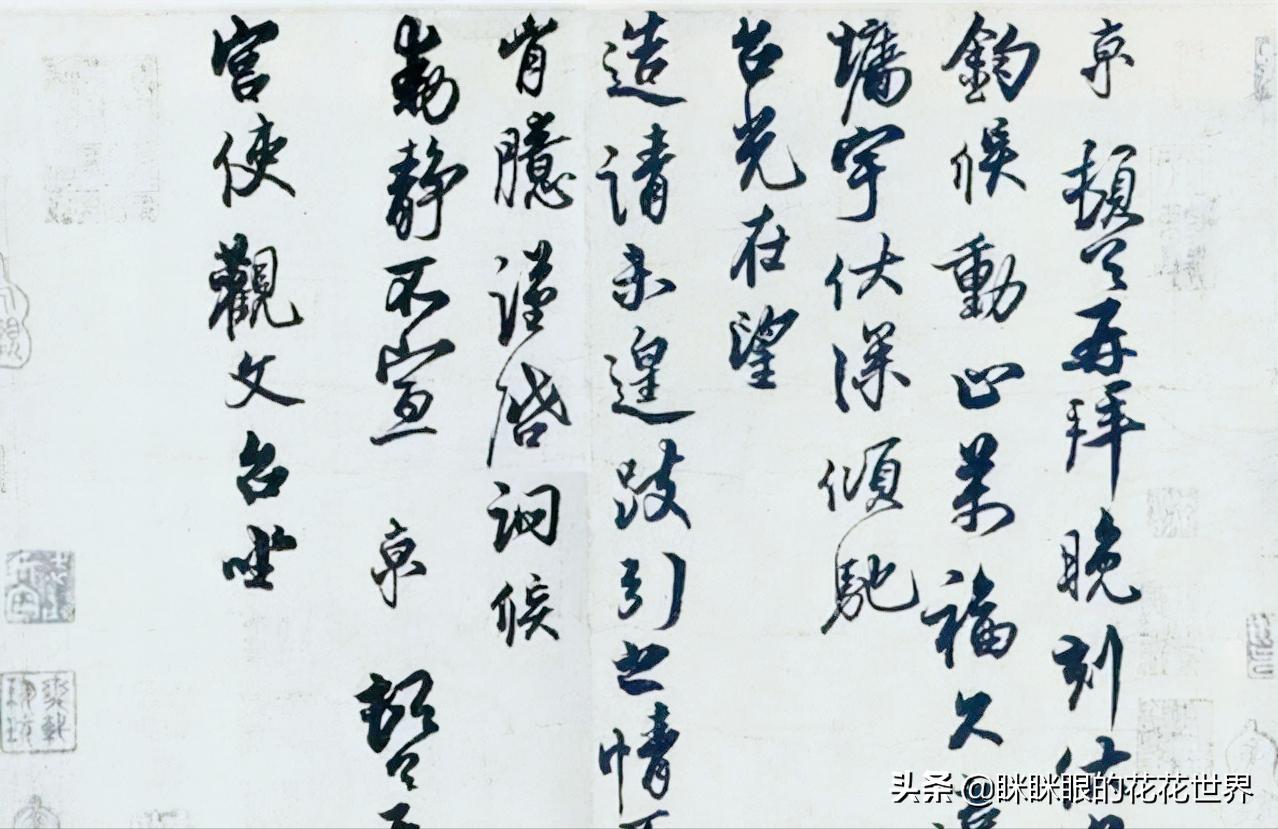 京 頓首再拜晚刻伏
鈞候動止萬福久
墉宇伏深傾馳
台光在望
造請未遑跂引之情
胷臆謹啓詗候
動靜不宣 京 頓首
宮使觀文台坐
头条 @眯眯眼的花花世界